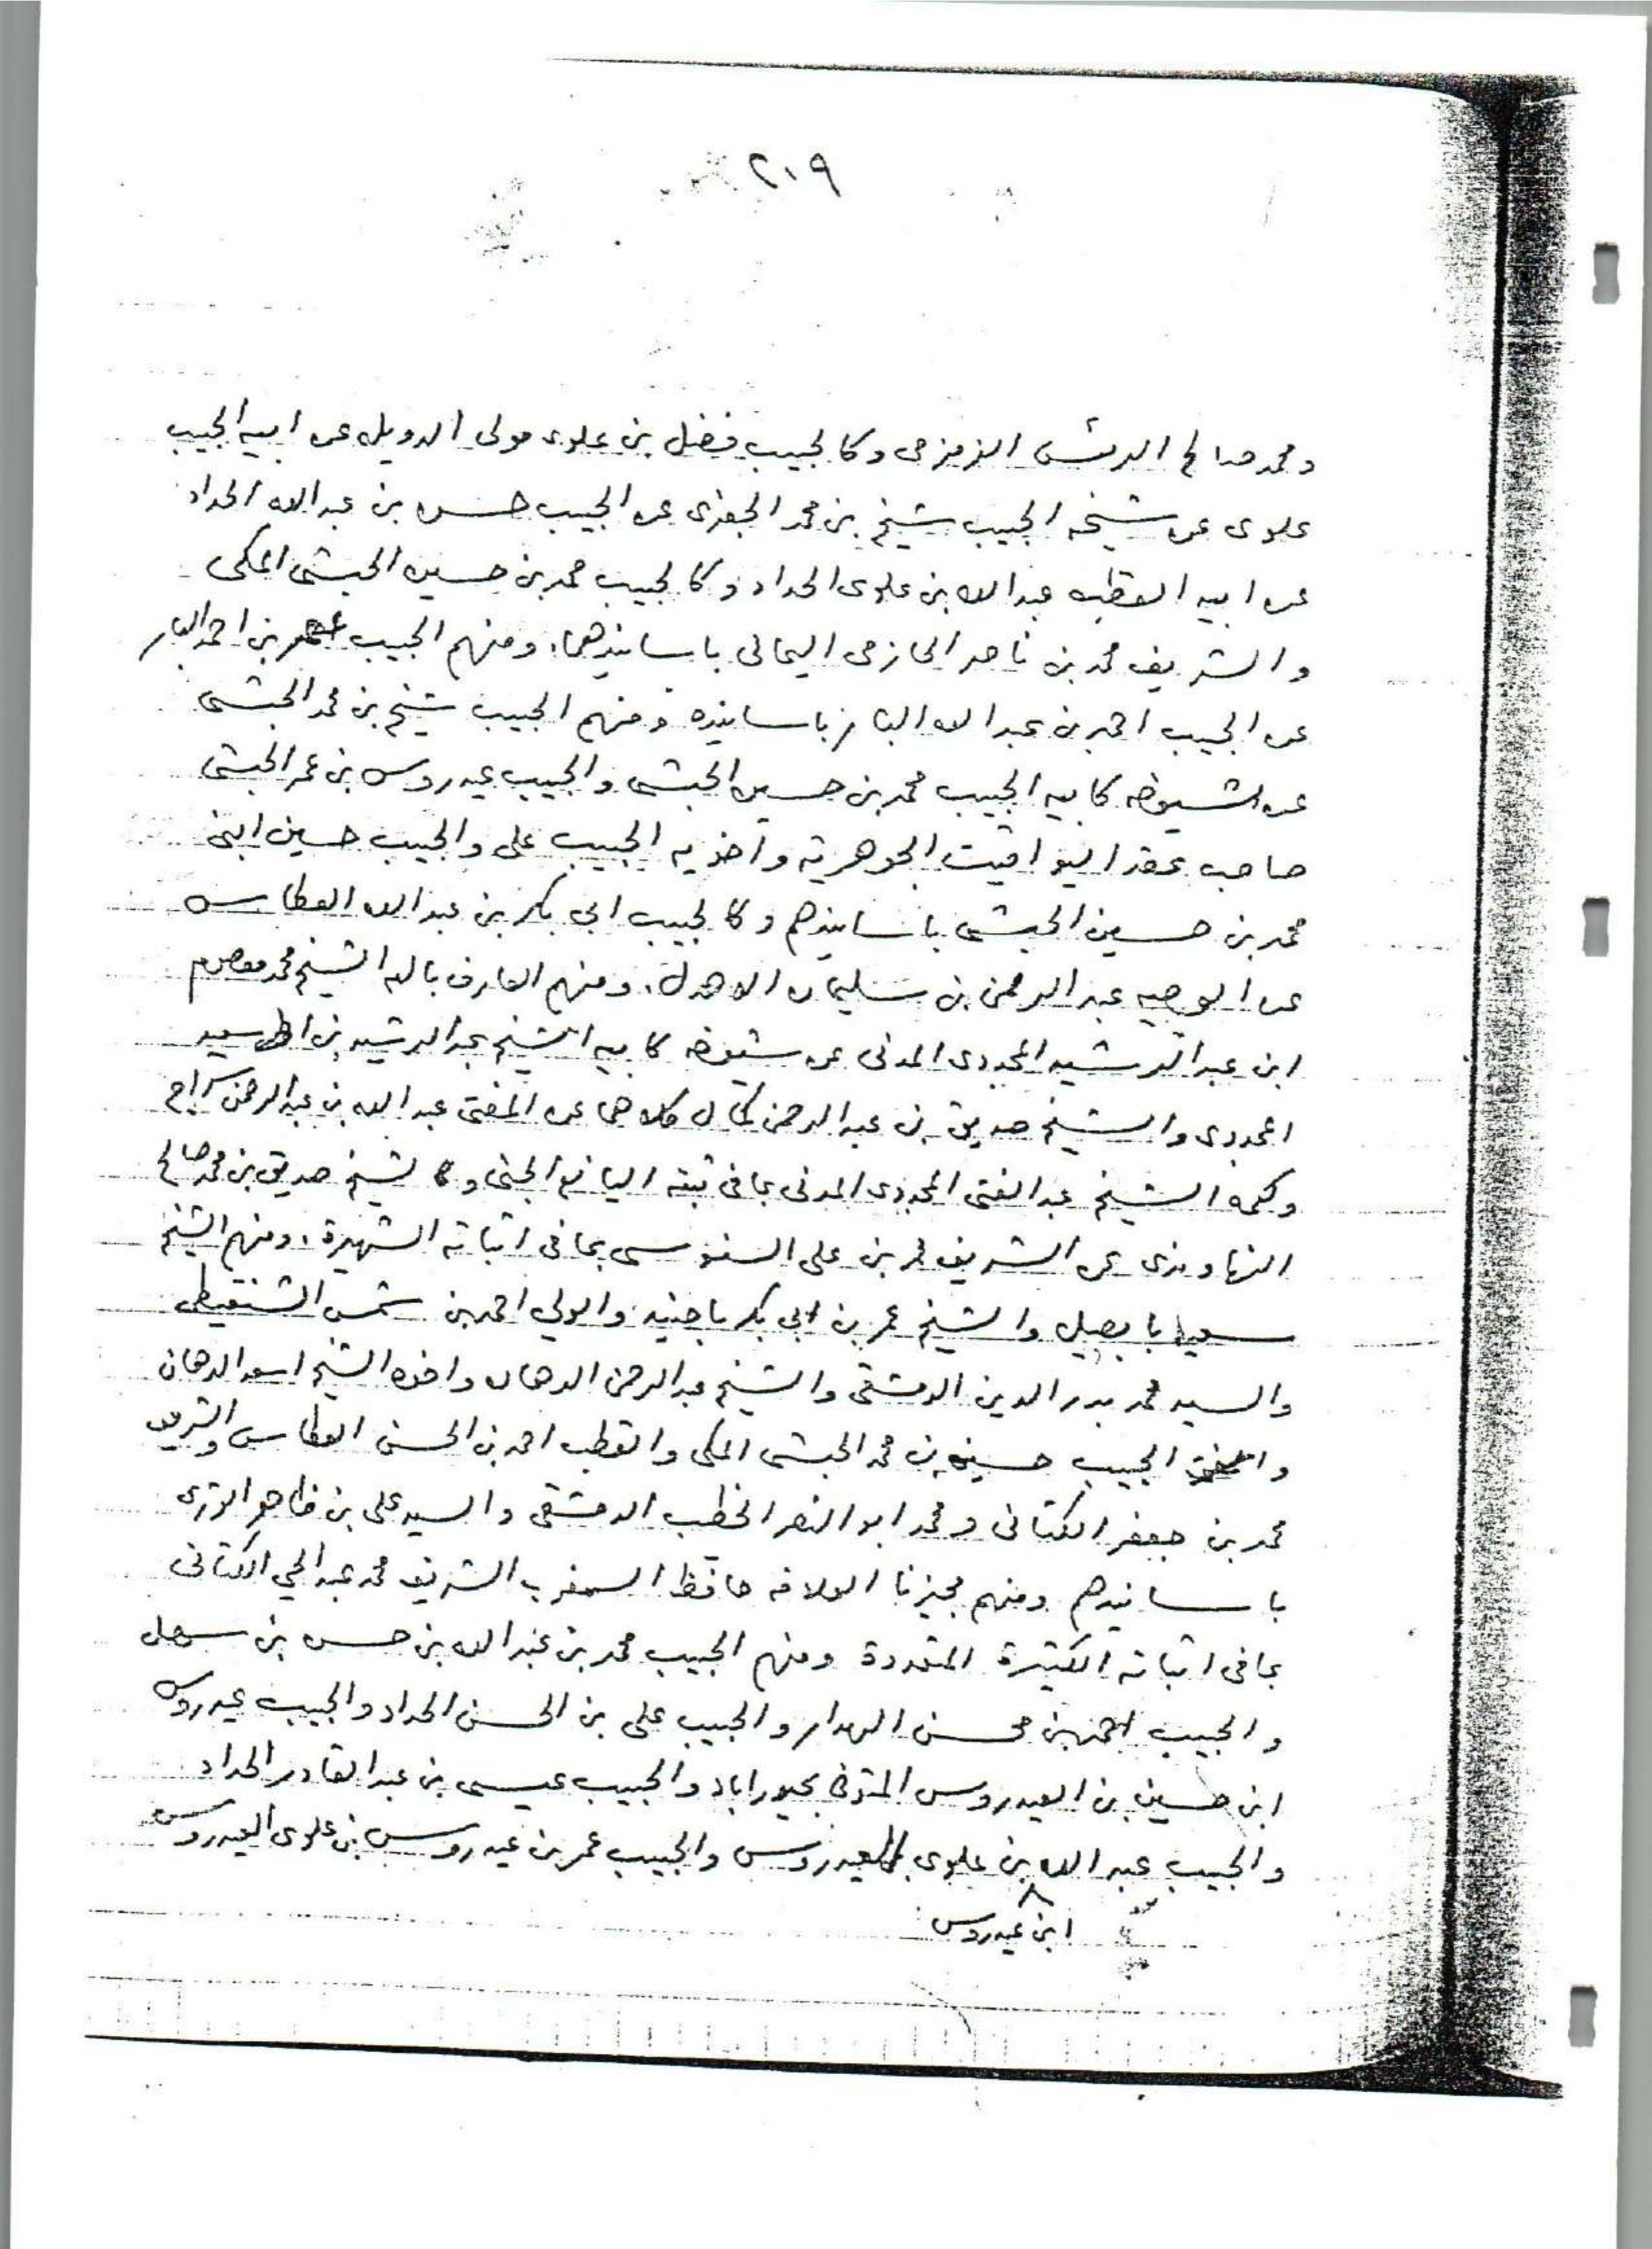 ٢٠٩
ومحمد صالح الريس الزمزمى وكالحبيب فضل بن علوى مولى الدويله عن ابيه الحبيب
علوى عن شيخه الحبيب شيخ بن محمد الجفرى عن الحبيب حسن بن عبد الله الحداد
عن ابيه القطب عبد الله بن علوى الحداد وكالحبيب محمد بن حسين الحبشى المكى
والشريف محمد بن ناصر الحازمى اليمانى باسانيدهما. ومنهم الحبيب عمر بن احمد البار
عن الحبيب احمد بن عبد الله البار باسانيده ومنهم الحبيب شيخ بن محمد الحبشى
عن شيوخه كابيه الحبيب محمد بن حسين الحبشى والحبيب عيدروس بن عمر الحبشى
صاحب عقد اليواقيت الجوهرية واخويه الحبيب على والحبيب حسين ابنى
محمد بن حسين الحبشى باسانيدهم وكالحبيب ابى بكر بن عبد الله العطاس
عن الوجيه عبد الرحمن بن سليمان الاهدل. ومنهم العارف بالله الشيخ محمد معصوم
ابن عبد الرشيد المجددى المدنى عن شيوخه كابيه الشيخ عبد الرشيد بن احمد سعيد
المجددى والشيخ صديق بن عبد الرحمن كمال كلاهما عن المفتى عبد الله بن عبد الرحمن سراج
وكعمه الشيخ عبد الغنى المجددى المدنى بما فى ثبته اليانع الجنى وكالشيخ صديق بن محمد صالح
النهاوندى عن الشريف محمد بن على السنوسى بما فى اثباته الشهيرة. ومنهم الشيخ
سعيد بابصيل والشيخ عمر بن ابى بكر باجنيد والولي احمد بن شمس الشنقيطى
والسيد محمد بدر الدين الدمشقى والشيخ عبد الرحمن الدهان واخوه الشيخ اسعد الدهان
والحبيب حسين بن محمد الحبشى المكى والقطب احمد بن الحسن العطاس والشريف
محمد بن جعفر الكتانى ومحمد ابو النصر الخطيب الدمشقى والسيد على بن ظاهر الوترى
باسانيدهم ومنهم مجيزنا العلامة حافظ المغرب الشريف محمد عبد الحي الكتانى
بما فى اثباته الكثيرة المتعددة ومنهم الحبيب محمد بن عبد الله بن حسن بن سهل
والحبيب احمد بن محسن الهدار والحبيب على بن الحسن الحداد والحبيب عيدروس
ابن حسين بن العيدروس المتوفى بحيدراباد والحبيب عيسى بن عبد القادر الحداد
والحبيب عبد الله بن علوى العيدروس والحبيب عمر بن عيدروس بن علوى العيدروس
ابن عيدروس